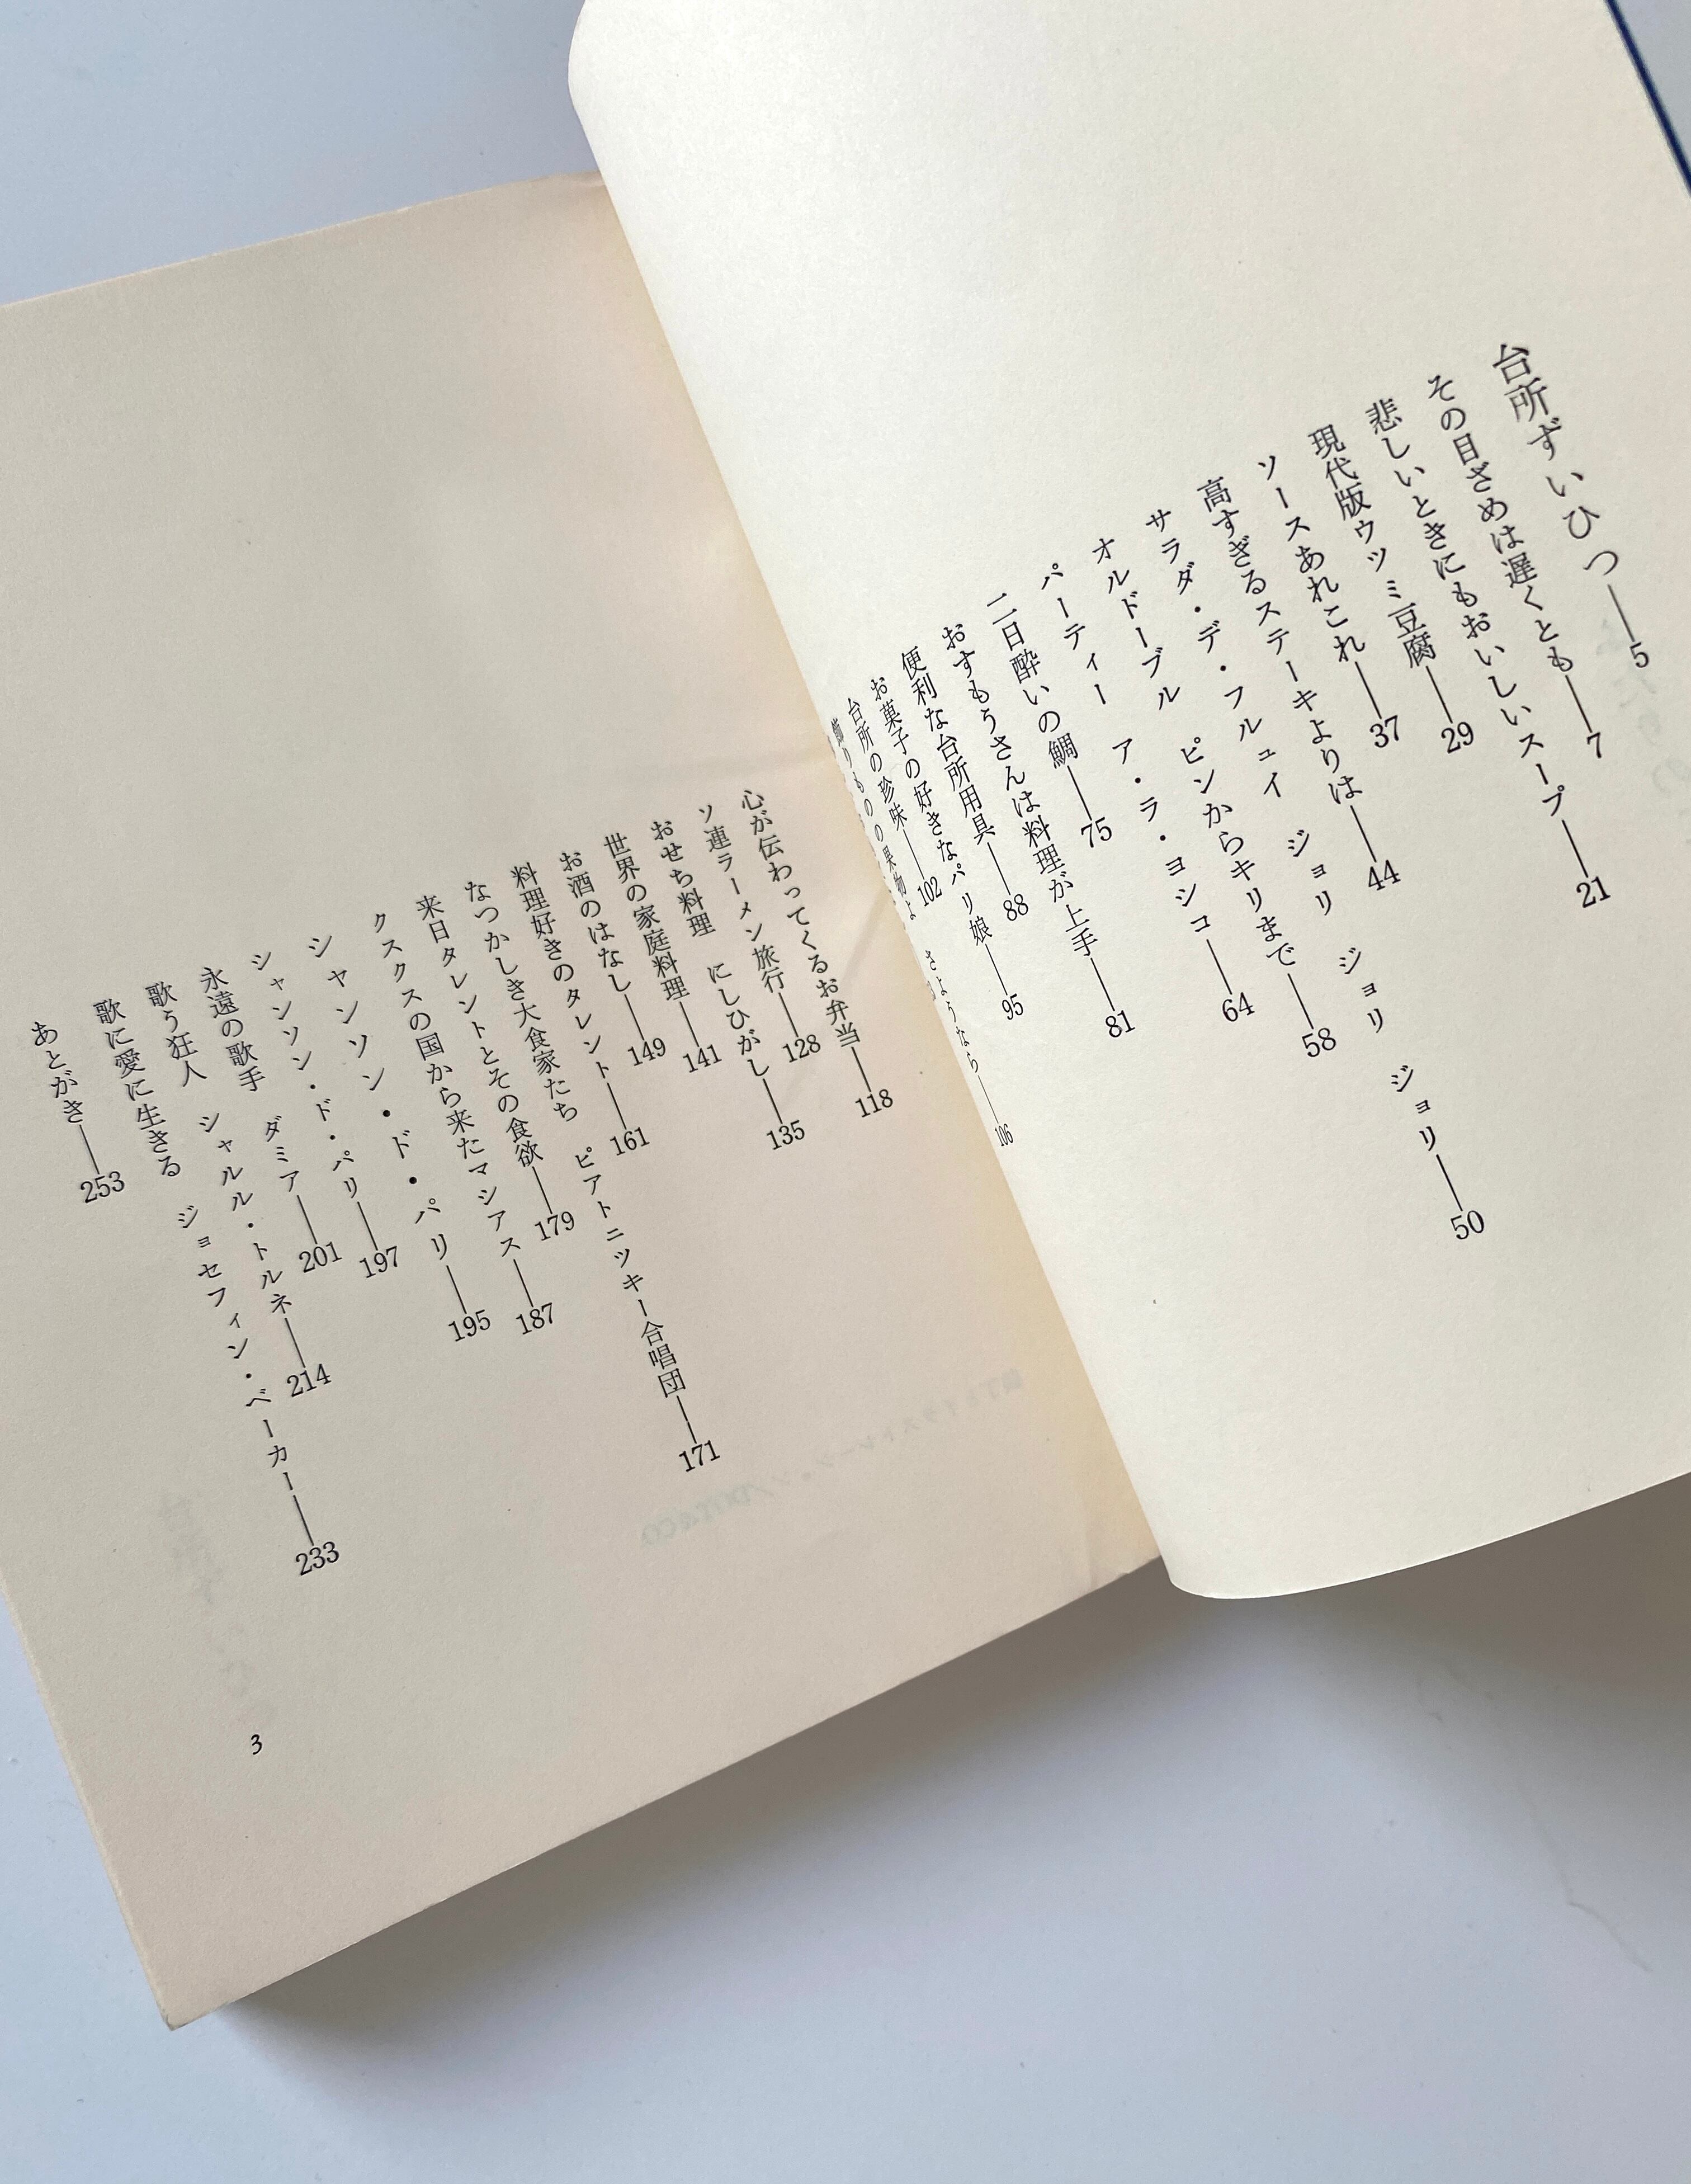 台所ずいひつ——5
その目ざめは遅くとも——7
悲しいときにもおいしいスープ——21
現代版ウツミ豆腐——29
ソースあれこれ——37
高すぎるステーキよりは——44
サラダ・デ・フルュイ　ジョリ　ジョリ　ジョリ——50
オルドーブル　ピンからキリまで——58
パーティー　ア・ラ・ヨシコ——64
二日酔いの鯛——75
おすもうさんは料理が上手——81
便利な台所用具——88
お菓子の好きなパリ娘——95
台所の珍味——102
飾りものの果物よ　さようなら——106
心が伝わってくるお弁当——118
ソ連ラーメン旅行——128
おせち料理　にしひがし——135
世界の家庭料理——141
お酒のはなし——149
料理好きのタレント——161
なつかしき大食家たち　ピアトニッキー合唱団——171
来日タレントとその食欲——179
クスクスの国から来たマシアス——187
シャンソン・ド・パリ——195
シャンソン・ド・パリ——197
永遠の歌手　ダミア——201
歌う狂人　シャルル・トルネ——214
歌に愛に生きる　ジョセフィン・ベーカー——233
あとがき——253
3